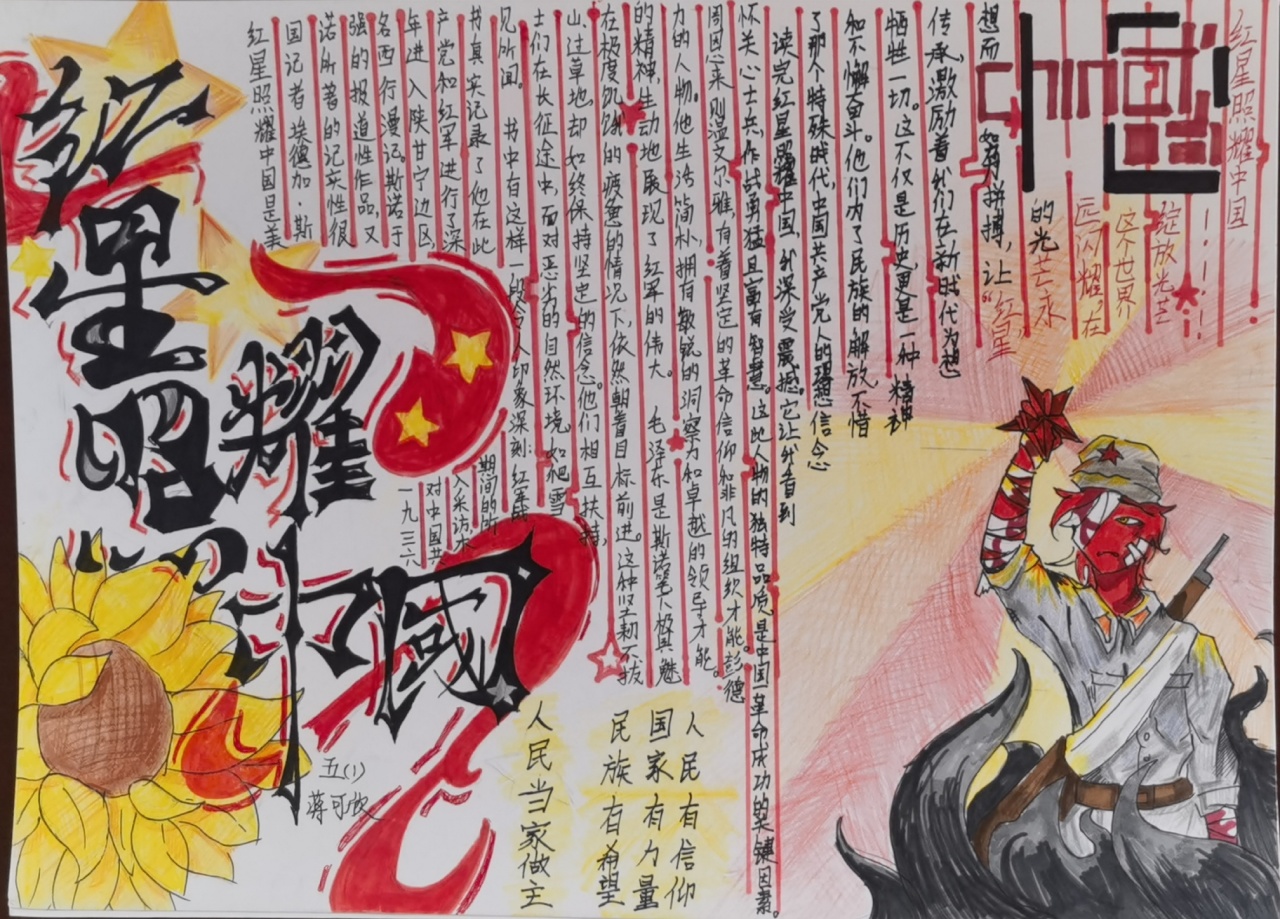 红星照耀中国
红星照耀中国是美
国记者埃德加·斯
诺所著的记实性很
强的报道性作品,又
名西行漫记。斯诺于
一九三六
年进入陕甘宁边区,
对中国共
产党和红军进行了深
入采访,
书真实记录了他在此
期间的所
见所闻。 书中有这样一段令人印象深刻:红军战
士们在长征途中,面对恶劣的自然环境,如爬雪
山、过草地,却如终保持坚定的信念。他们相互扶持,
在极度饥饿的疲惫的情况下,依然朝着目标前进。这种坚韧不拔
的精神,生动地展现了红军的伟大。 毛泽东是斯诺笔下极具魅
力的人物。他生活简朴,拥有敏锐的洞察力和卓越的领导才能。
周恩来则温文尔雅,有着坚定的革命信仰和非凡的组织才能。彭德
怀关心士兵,作战勇猛且富有智慧。这此人物的独特品质是中国革命成功的关键因素。
读完红星照耀中国,我深受震撼。它让我看到
了那个特殊时代,中国共产党人的理想信念
和不懈奋斗。他们为了民族的解放不惜
牺牲一切。这不仅是历史,更是一种精神
传承,激励着我们在新时代为梦
想而努力拼搏,让“红星
的光芒永
远闪耀,在
这个世界
绽放光芒
!!!!!
红星照耀中国
china
人民有信仰
国家有力量
民族有希望
人民当家做主
五(1)
蒋可